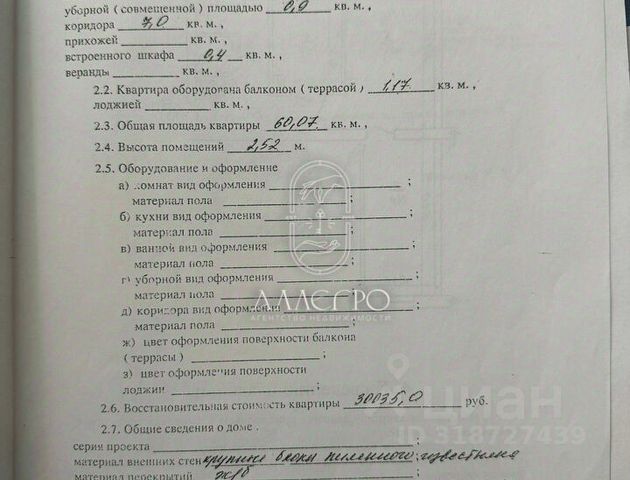 уборной (совмещенной) площадью 0,9 кв. м. ,
коридора 7,0 кв. м. ,
прихожей кв. м. ,
встроенного шкафа 0,4 кв. м. ,
веранды кв. м. ,
2.2. Квартира оборудована балконом (террасой) 1,17 кв. м. ,
лоджией кв. м. ,
2.3. Общая площадь квартиры 60,07 кв. м. ,
2.4. Высота помещений 2,52 м.
2.5. Оборудование и оформление
а) комнат вид оформления ;
материал пола ;
б) кухни вид оформления ;
материал пола ;
в) ванной вид оформления ;
материал пола ;
г) уборной вид оформления ;
материал пола ;
АЛЛЕГРО
АГЕНТСТВО НЕДВИЖИМОСТИ
д) коридора вид оформления ;
материал пола ;
ж) цвет оформления поверхности балкона
(террасы) ;
з) цвет оформления поверхности
лоджии ;
циан
ID 318727439
2.6. Восстановительная стоимость квартиры 30035,0 руб.
2.7. Общие сведения о доме .
серия проекта
материал внешних стен крупные блоки пиленного известняка
материал перекрытий ж/б